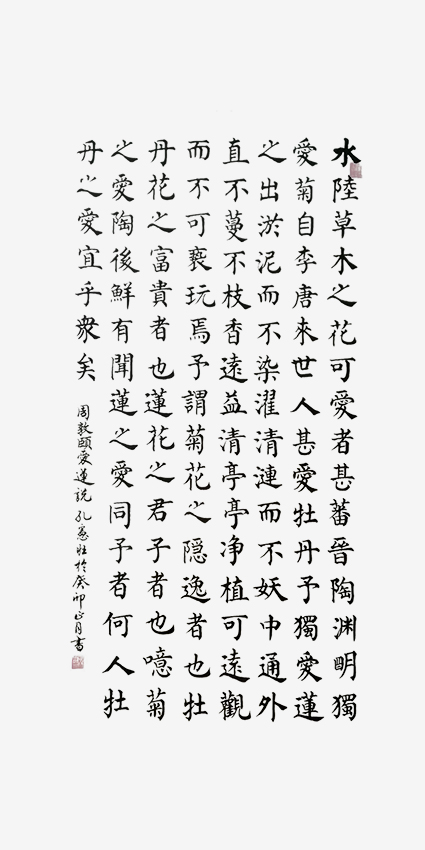 水陸草木之花可愛者甚蕃晉陶渊明獨
愛菊自李唐來世人甚愛牡丹予獨愛蓮
之出淤泥而不染濯清漣而不妖中通外
直不蔓不枝香遠益清亭亭净植可遠觀
而不可褻玩焉予謂菊花之隐逸者也牡
丹花之富貴者也蓮花之君子者也噫菊
之愛陶後鮮有聞蓮之愛同予者何人牡
丹之愛宜乎衆矣
周敦頤愛蓮説 孔於癸卯正月書